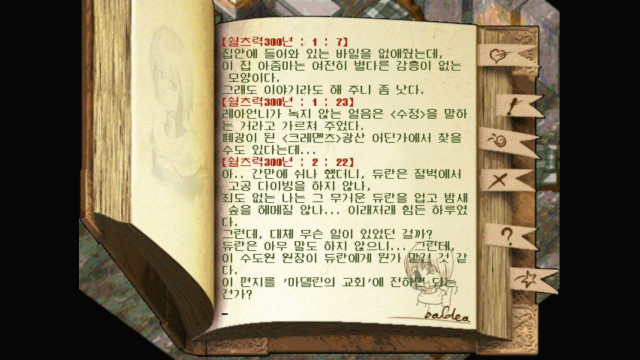 [쉴츠력300년 : 1 : 7]
집안에 들어와 있는 바일을 없애줬는데,
이 집 아줌마는 여전히 별다른 감흥이 없는
모양이다.
그래도 이야기라도 해 주니 좀 낫다.
[쉴츠력300년 : 1 : 23]
레아언니가 녹지 않는 얼음은 <수정>을 말하
는 거라고 가르쳐 주었다.
폐광이 된 <크레멘츠>광산 어딘가에서 찾을
수도 있다는데...
[쉴츠력300년 : 2 : 22]
아.. 간만에 쉬나 했더니, 듀란은 절벽에서
고공 다이빙을 하지 않나,
죄도 없는 나는 그 무거운 듀란을 업고 밤새
숲을 헤메질 않나... 이래저래 힘든 하루였
다.
그런데, 대체 무슨 일이 있었던 걸까?
듀란은 아무 말도 하지 않으니... 그런데,
이 수도원 원장이 듀란에게 뭔가 맡긴 것 같
다.
이 편지를 '마델린의 교회'에 전하면 되는
건가?
baldea
?